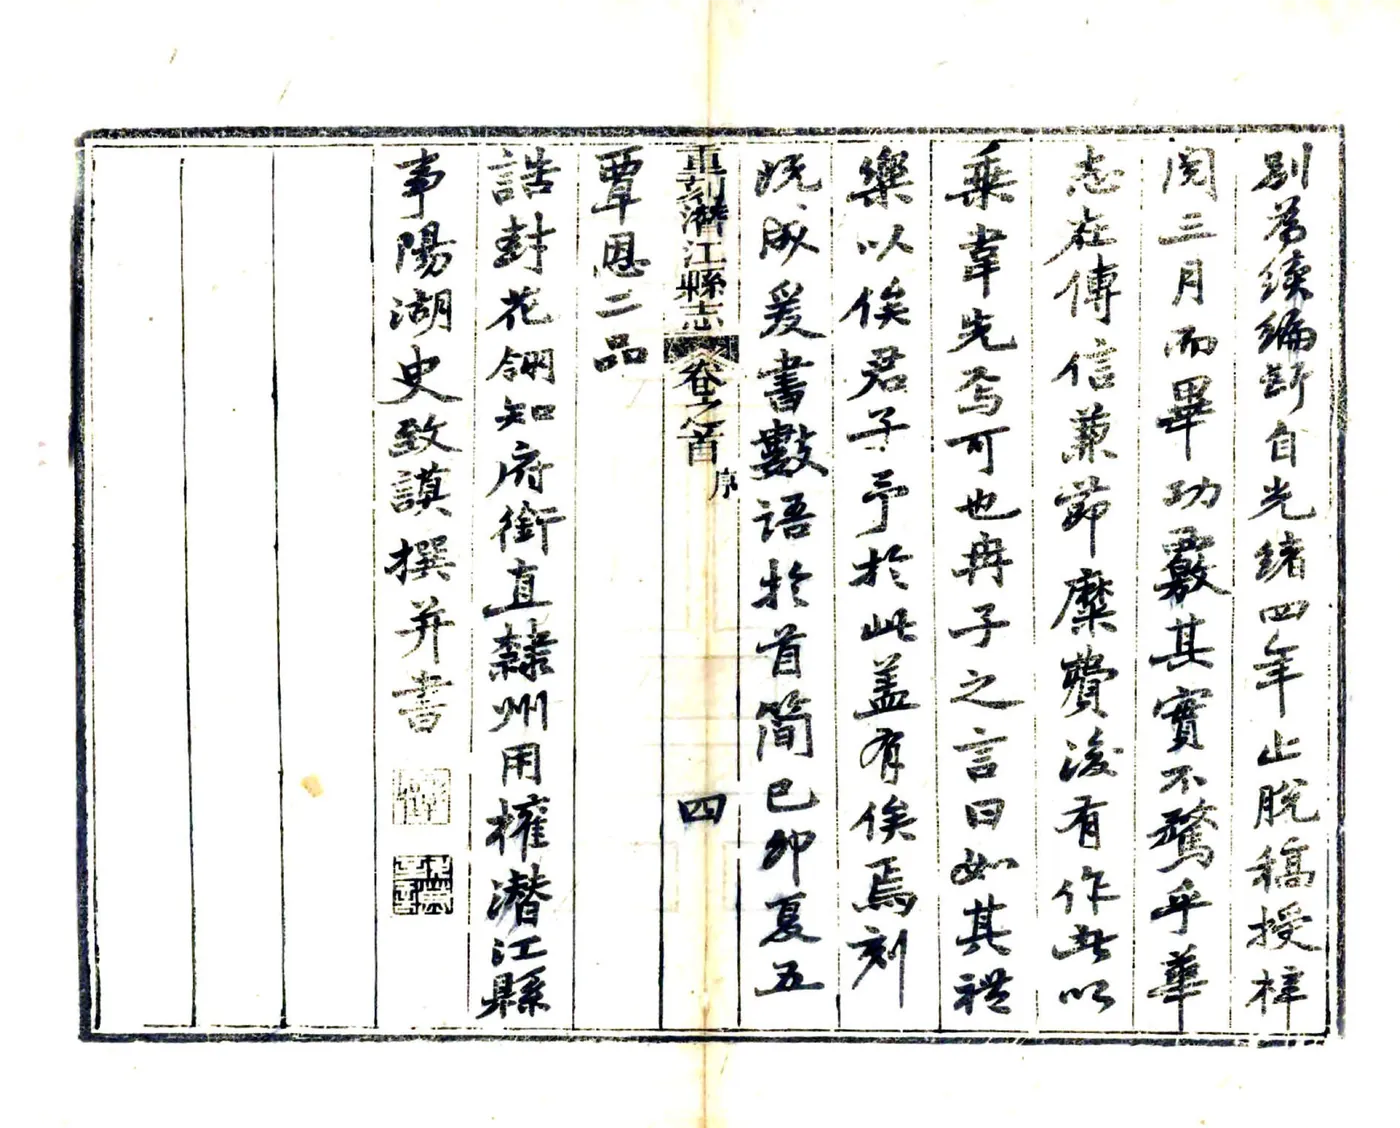 別為續編斷自光緒四年止脫稿授梓
閱三月而畢功覈其實不騖乎華
志在傳信兼節糜費後有作此以
乘韋先焉可也冉子之言曰如其禮
樂以俟君子予於此蓋有俟焉刻
既成爰書數語於首簡己卯夏五
重刻潛江縣志 卷之首 序 四
覃恩二品
誥封花翎知府銜直隸州用權潛江縣
事陽湖史致謨撰并書